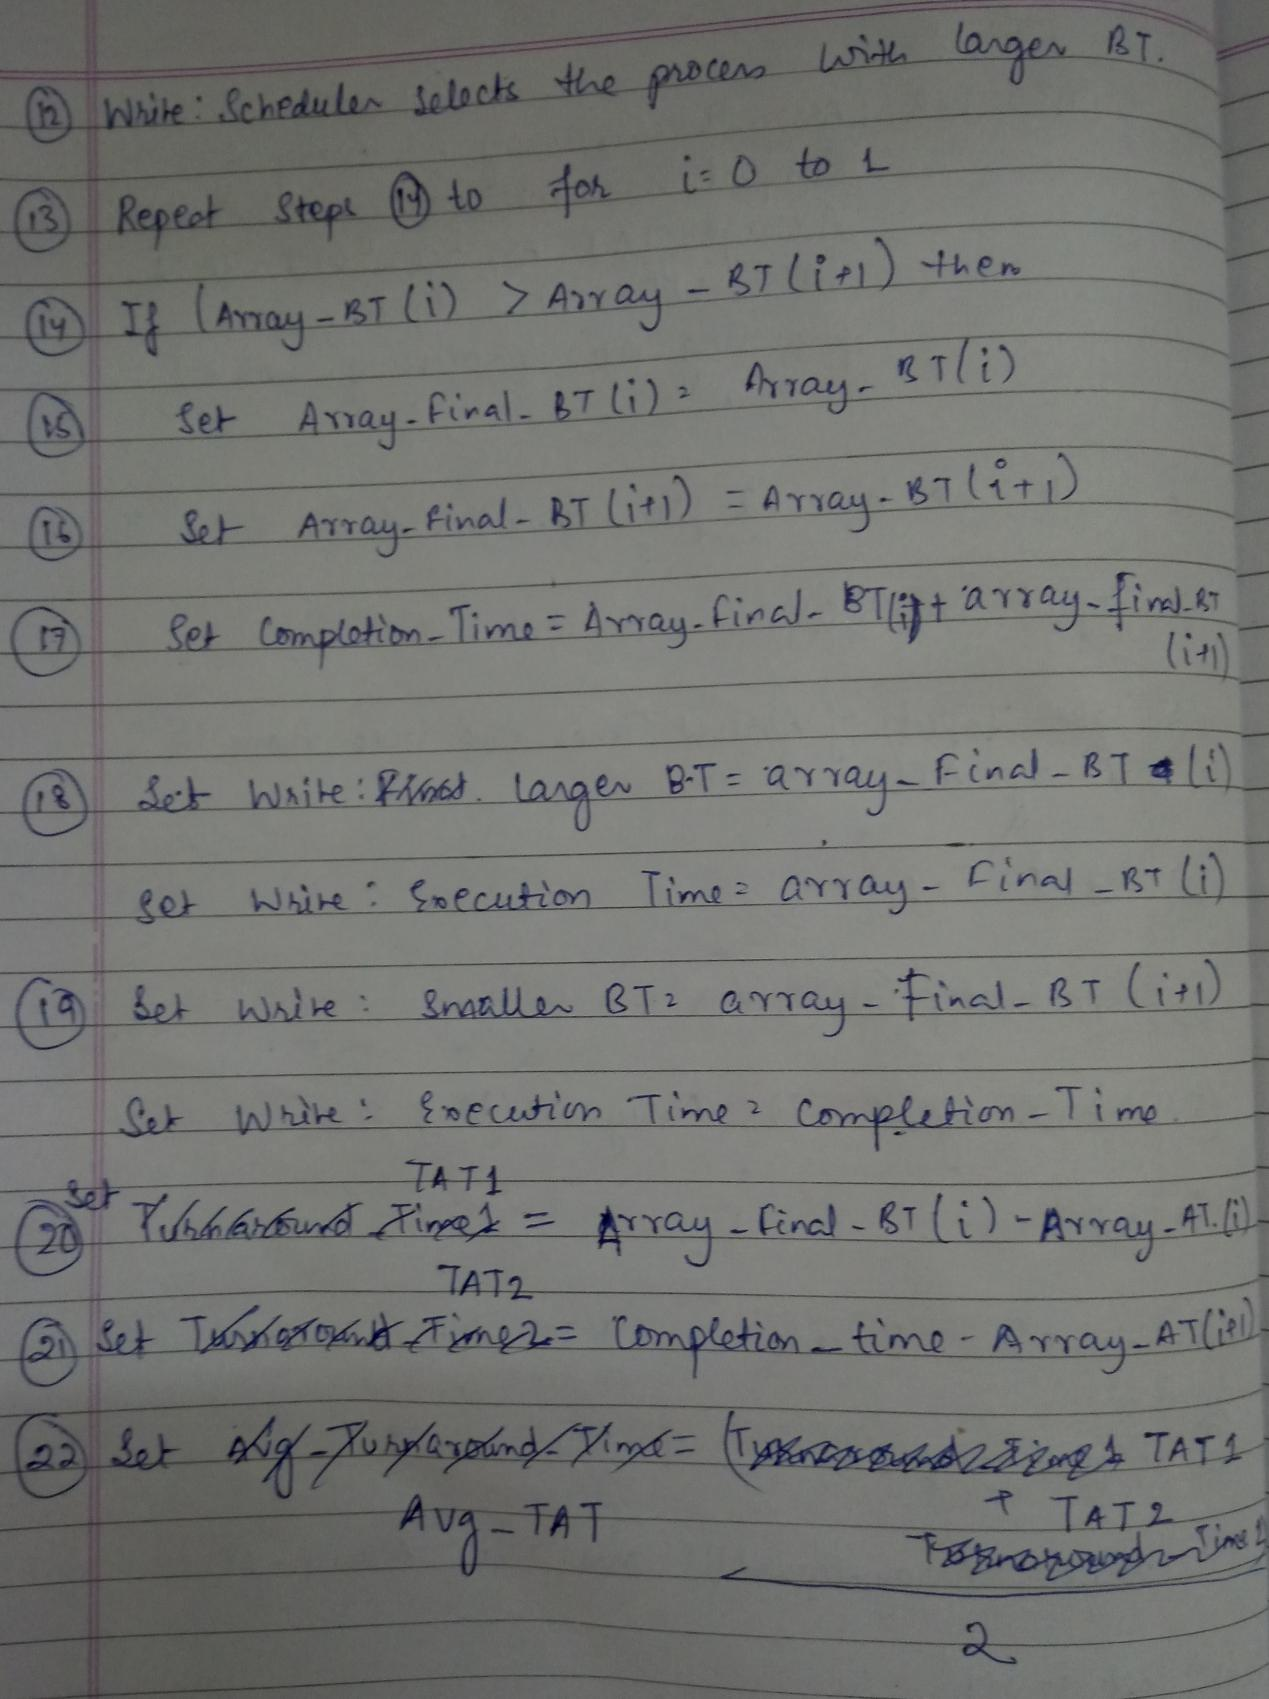 (12) Write: Scheduler selects the process with larger BT.
(13) Repeat Steps (14) to for i=0 to 1
(14) If (Array-BT(i) > Array-BT(i+1) then
(15) Set Array-final-BT(i) = Array-BT(i)
(16) Set Array-final-BT(i+1) = Array-BT(i+1)
(17) Set Completion-Time = Array-final-BT(i) + array-final-BT
(i+1)
(18) Set Write: First. larger B.T = array-Final-BT (i)
Set Write: Execution Time = array-Final-BT (i)
(19) Set Write: Smaller BT = array-Final-BT (i+1)
Set Write: Execution Time = Completion-Time
TAT1
Set
(20) Turnaround_Time1 = Array-final-BT(i) - Array-AT.(i)
TAT2
(21) Set Turnaround_Time2 = Completion_time - Array-AT(i+1)
(22) Set Avg-Turnaround-Time = (Turnaround_Time1 TAT1
+ TAT2
Avg-TAT Turnaround-Time2
2